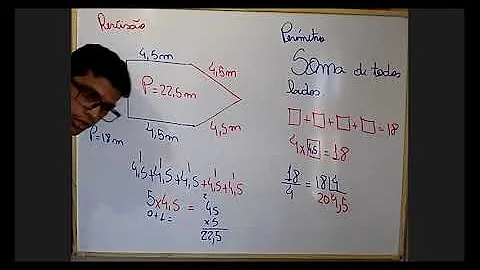 Revisão
4,5m
4,5m
P=22,5m
4,5m
4,5m
P=18m
4,5+4,5+4,5+4,5+4,5
5x4,5 =
0+1=
45
x5
22,5
Perímetro
Soma de todos
lados.
□+□+□+□=18
4x4,5=18
18/4 = 18 4
20 4,5